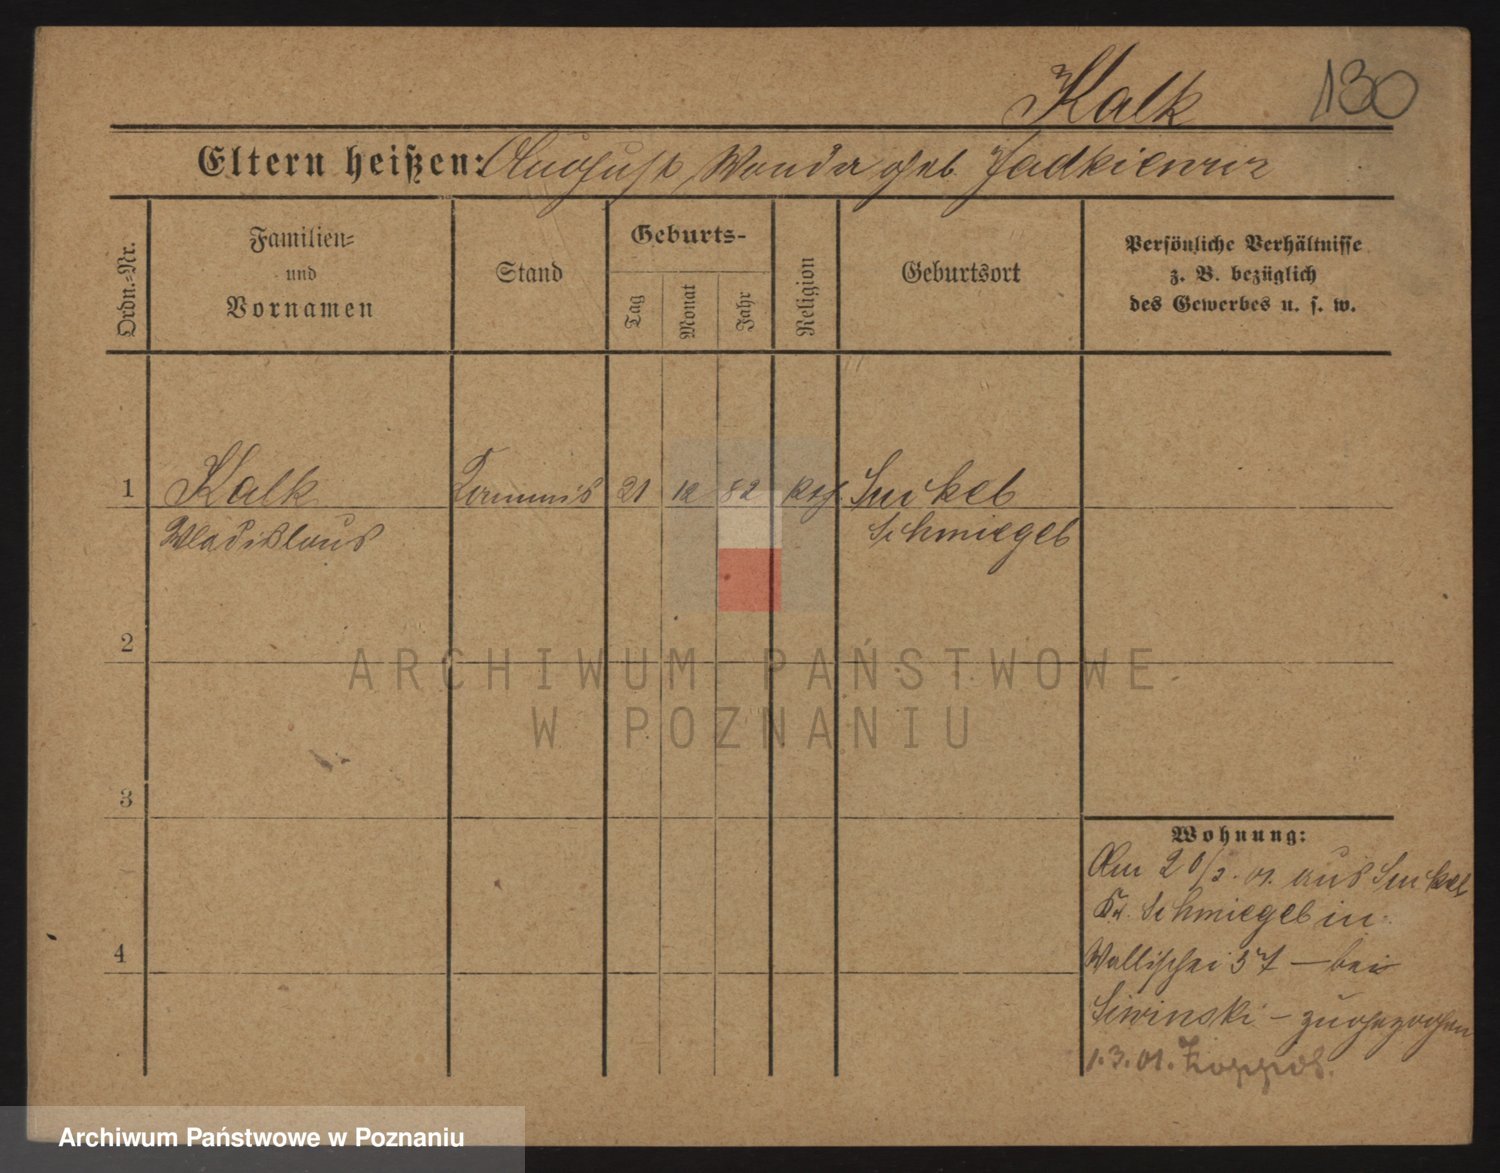 Kalk 130
Eltern heißen: August, Wanda geb. Jadkiewicz
Ordn.-Nr.
Familien-
und
Vornamen
Stand
Geburts-
Tag
Monat
Jahr
Religion
Geburtsort
Persönliche Verhältnisse
z. B. bezüglich
des Gewerbes u. s. w.
1 Kalk Commis 21 12 82 kth. Smikel
Wladislaus Schmiegel
2
ARCHIWUM PAŃSTWOWE
W POZNANIU
3
Wohnung:
Am 20/2. 01. aus Smikel
Kr. Schmiegel in
4 Wallischei 37 – bei
Siwinski – zugezogen
1.3.01. Zoppot.
Archiwum Państwowe w Poznaniu